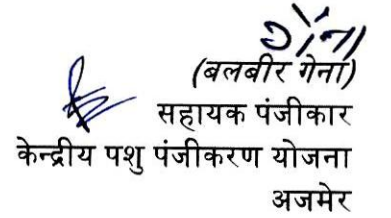 (बलबीर गेना)
सहायक पंजीकार
केन्द्रीय पशु पंजीकरण योजना
अजमेर